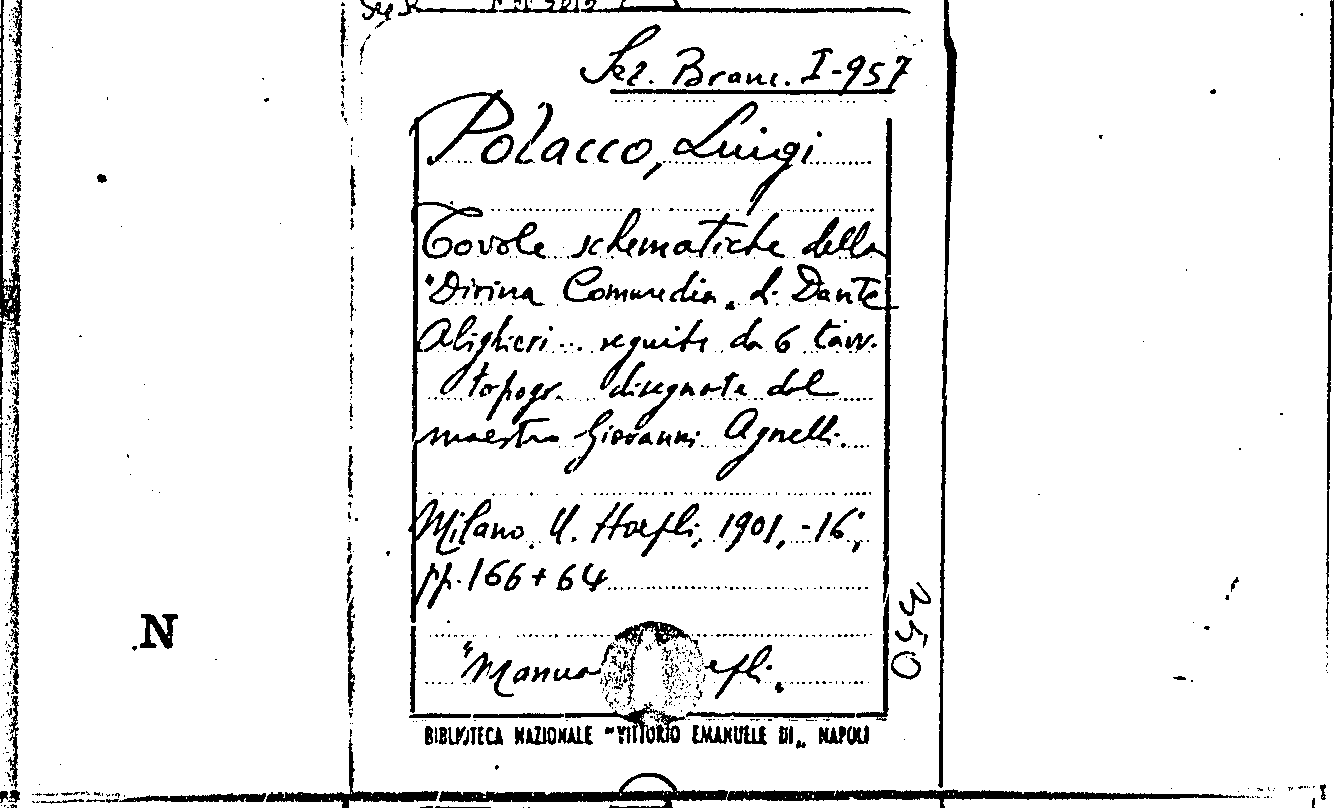 Sez. Branc. I-957
Polacco, Luigi
Tavole schematiche della
"Divina Commedia" di Dante
Alighieri... seguite da 6 tavv.
topogr. disegnate dal
maestro Giovanni Agnelli.
Milano, U. Hoepli, 1901, -16°,
pp. 166 + 64
350
N
"Manua epli.
BIBLIOTECA NAZIONALE "VITTORIO EMANUELE III„ NAPOLI